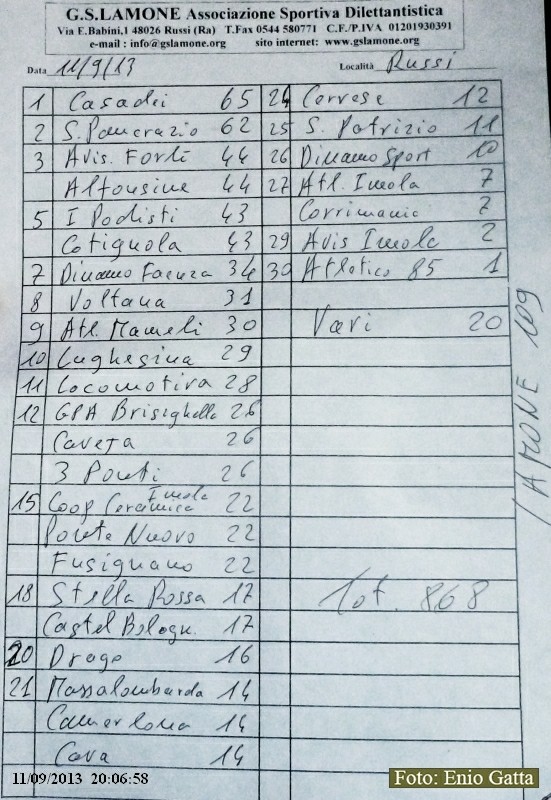 G.S.LAMONE Associazione Sportiva Dilettantistica
Via F.Babini,1 48026 Russi (Ra) T.Fax 0544 580771 C.F./P.IVA 01201930391
e-mail : info@gslamone.org sito internet: www.gslamone.org
Data 11/9/13 Località Russi
1 Casadei 65
2 S. Pancrazio 62
3 Avis. Forlì 44
Alfonsine 44
5 I Podisti 43
Cotignola 43
7 Dinamo Faenza 34
8 Voltana 31
9 Atl. Mameli 30
10 Lughesina 29
11 Locomotiva 28
12 GPA Brisighella 26
Caveja 26
3 Ponti 26
15 Coop Ceramica Imola 22
Ponte Nuovo 22
Fusignano 22
18 Stella Rossa 17
Castel Bologn. 17
20 Drago 16
21 Massalombarda 14
Camerlona 14
Cava 14
24 Correse 12
25 S. Patrizio 11
26 Dinamo Sport 10
27 Atl. Imola 7
Corrimania 7
29 Avis Imola 2
30 Atletico 85 1
Vari 20
Tot. 868
LAMONE 109
11/09/2013 20:06:58
Foto: Enio Gatta